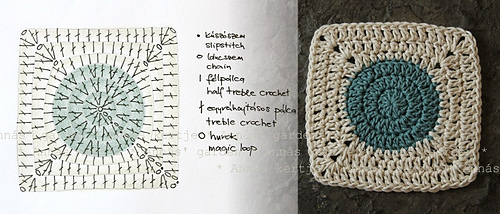 kúszószem
slipstitch
láncszem
chain
félpálca
half treble crochet
egyráhajtásos pálca
treble crochet
hurok
magic loop